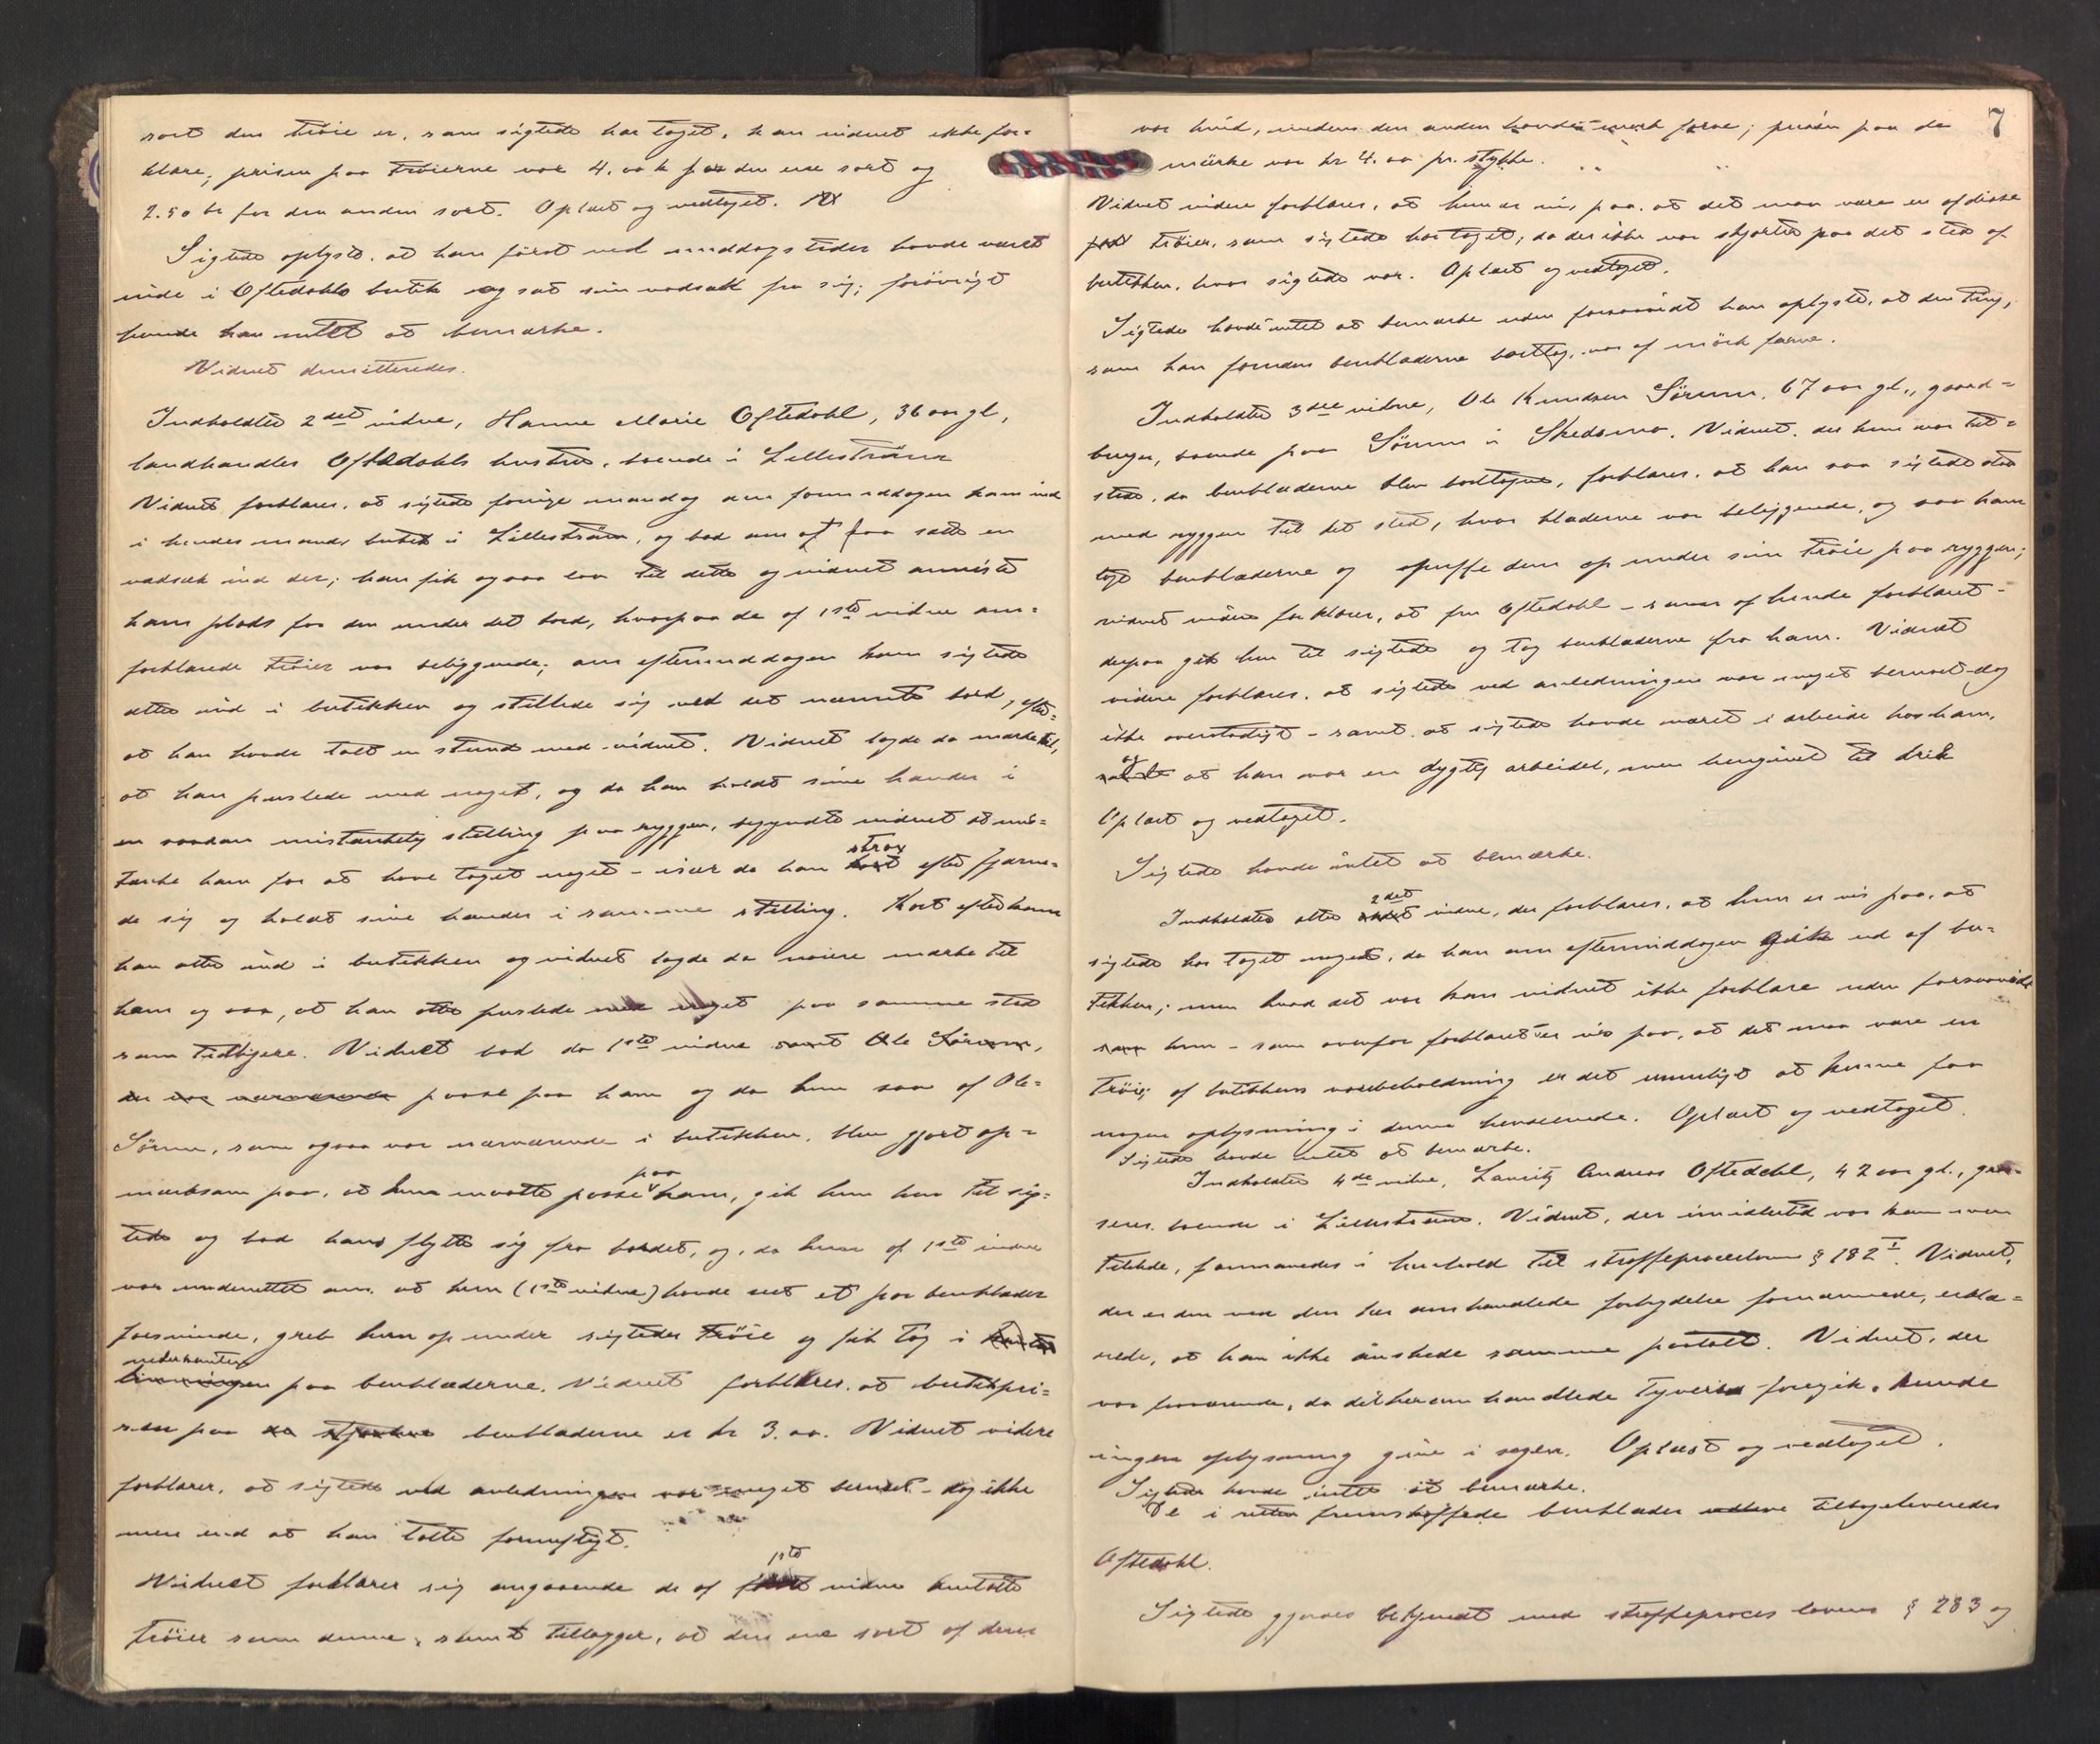 sort den trøie er, som sigtede har taget, kan vidnet ikke for=
klare; prisen paa trøierne var 4.00 k for den ene sort og
2.50 kr for den anden sort. Oplæst og vedtaget.
Sigtede oplyste, at han først ved middagstider havde været
inde i Oftedahls butik og sat sin vadsæk fra sig; forøvrigt
havde han intet at bemærke.
Vidnet demitteredes.
Indkaldtes 2det vidne, Hanne Marie Oftedahl, 36 aar gl,
landhandler Oftedahls hustru, boende i Lillestrøm
Vidnet forklarer, at sigtede forrige mandag om formiddagen kom ind
i hendes mands butik i Lillestrøm, og bad om at faa sætte en
vadsæk ind der; han fik ogsaa lov til dette og vidnet anviste
ham plads for den under det bord, hvorpaa de af 1ste vidne om=
forklarede trøier var beliggende; om eftermiddagen kom sigtede
atter ind i butikken og stillede sig ved det nævnte bord, efter=
at han havde talt en stund med vidnet. Vidnet lagde da mærke til,
at han puslede med noget, og da han holdt sine hænder i
en saadan mistænkelig stilling paa ryggen, begyndte vidnet at mis=
tænke ham for at have taget noget – især da han strax efter fjerne=
de sig og holdt sine hænder i samme stilling. Kort efter kom
han atter ind i butikken og vidnet lagde da nøiere mærke til
ham og saa, at han atter puslede med noget paa samme sted
som tidligere. Vidnet bad da 1ste vidne samt Ole Sørum,
der var nærværende passe paa ham og da hun saa af Ole=
Sørum, som ogsaa var nærværende i butikken, blev gjort op=
mærksom paa, at hun maatte passe paa ham, gik hun hen til sig=
tede og bad ham flytte sig fra bordet, og, da hun af 1ste vidne
var underrettet om, at hun (1ste vidne) havde seet et par benklæder
forsvinde, greb hun op under sigtedes trøie og fik tag i
nederkanten
linningen paa benklæderne. Vidnet forklarer, at butikpri=
sen paa benklæderne er kr 3.00. Vidnet videre
forklarer, at sigtede ved anledningen var meget beruset – dog ikke
mere end at han talte fornuftigt.
Vidnet forklarer sig angaaende de af 1ste vidne omtalte
trøier som denne, samt tillægger, at den ene sort af dem
7
var hvid, medens den anden havde mørk farve; prisen paa de
mørke var kr 4.00 pr. stykke.
Vidnet videre forklarer, at hun er vis paa, at det maa være en af disse
trøier, som sigtede har taget, da der ikke var skjorter paa det sted af
butikken, hvor sigtede var. Oplæst og vedtaget.
Sigtede havde intet at bemærke uden forsaavidt han oplyste, at den ting,
som han foruden benklæderne borttog, var af mörk farve.
Indkaldtes 3die vidne, Ole Knudsen Sörum, 67 aar gl., gaard=
bruger, boende paa Sörum i Skedsmo. Vidnet, der kun var til=
stede, da benklæderne blev borttagne, forklarer, at han saa sigtede staa
med ryggen til det sted, hvor klæderne var beliggende, og saa ham
tage benklæderne og stuffe dem op under sin trøie paa ryggen;
vidnet videre forklarer, at fru Oftedahl – som af hende forklaret –
derpaa gik hen til sigtede og tog benklæderne fra ham. Vidnet
videre forklarer, at sigtede ved anledningen var noget beruset – dog
ikke overstadigt – samt, at sigtede havde været i arbeide hos ham,
og at han var en dygtig arbeider, men hengiven til drik
Oplæst og vedtaget.
Sigtede havde intet at bemærke.
Indkaldtes atter 2det vidne, der forklarer, at hun er vis paa, at
sigtede har taget noget, da han om eftermiddagen gik ud af bu=
tikken; men hvad det var kan vidnet ikke forklare uden forsaavidt
som hun – som ovenfor forklaret – er vis paa, at det maa være en
trøie; af butikkens varebeholdning er det umuligt at kunne faa
nogen oplysning i denne henseende. Oplæst og vedtaget.
Sigtede havde intet at bemærke.
Indkaldtes 4de vidne, Lauritz Andreas Oftedahl, 42 aar gl.,
boende i Lillestrøm. Vidnet, der imidlertid var kommen
tilstede, formanedes i henhold til straffeproceslovens § 182 I. Vidnet,
der er den ved den her omhandlede forbrydelse fornærmede, erklæ=
rede, at han ikke ønskede samme paatalt. Vidnet, der
var fraværende, da det her omhandlede tyveri foregik, kunde
ingen oplysning give i sagen. Oplæst og vedtaget.
Sigtede havde intet at bemærke.
De i retten fremskaffede benklæder tilbageleveredes
Oftedahl.
Sigtede gjordes bekjendt med straffeproces lovens § 283 og